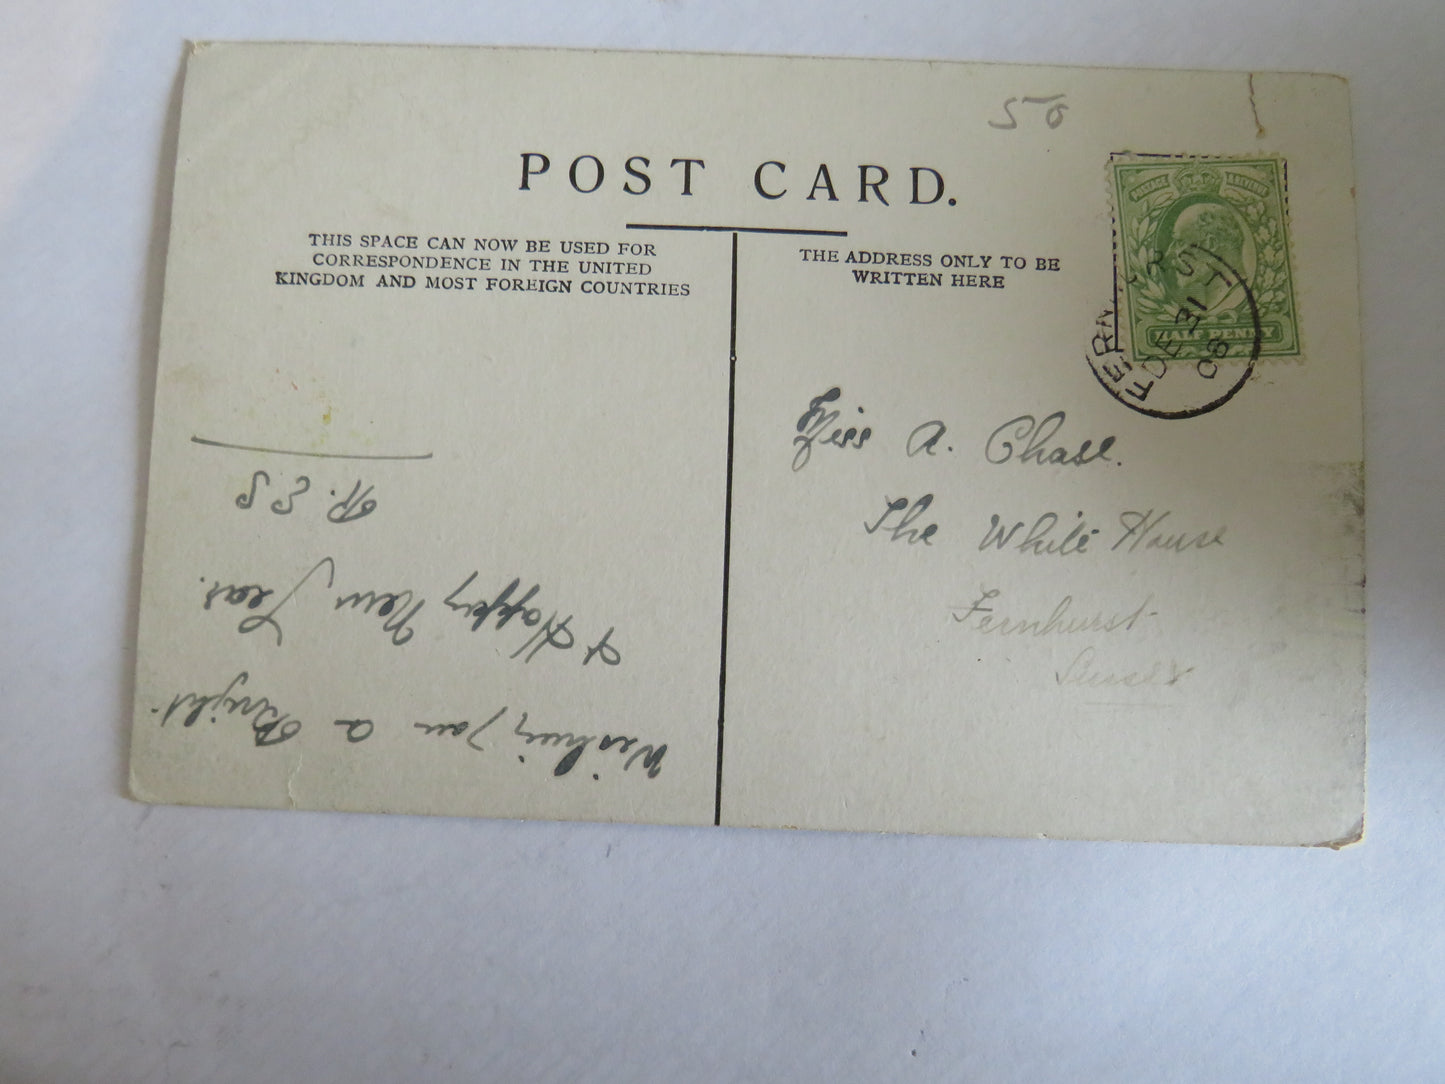 50
POST CARD.
THIS SPACE CAN NOW BE USED FOR
CORRESPONDENCE IN THE UNITED
KINGDOM AND MOST FOREIGN COUNTRIES
THE ADDRESS ONLY TO BE
WRITTEN HERE
POSTAGE REVENUE
HALF PENNY
FERNHURST
DE 31
08
Miss A. Chase.
The White House
Fernhurst
Sussex
Wishing you a Bright
& Happy New Year.